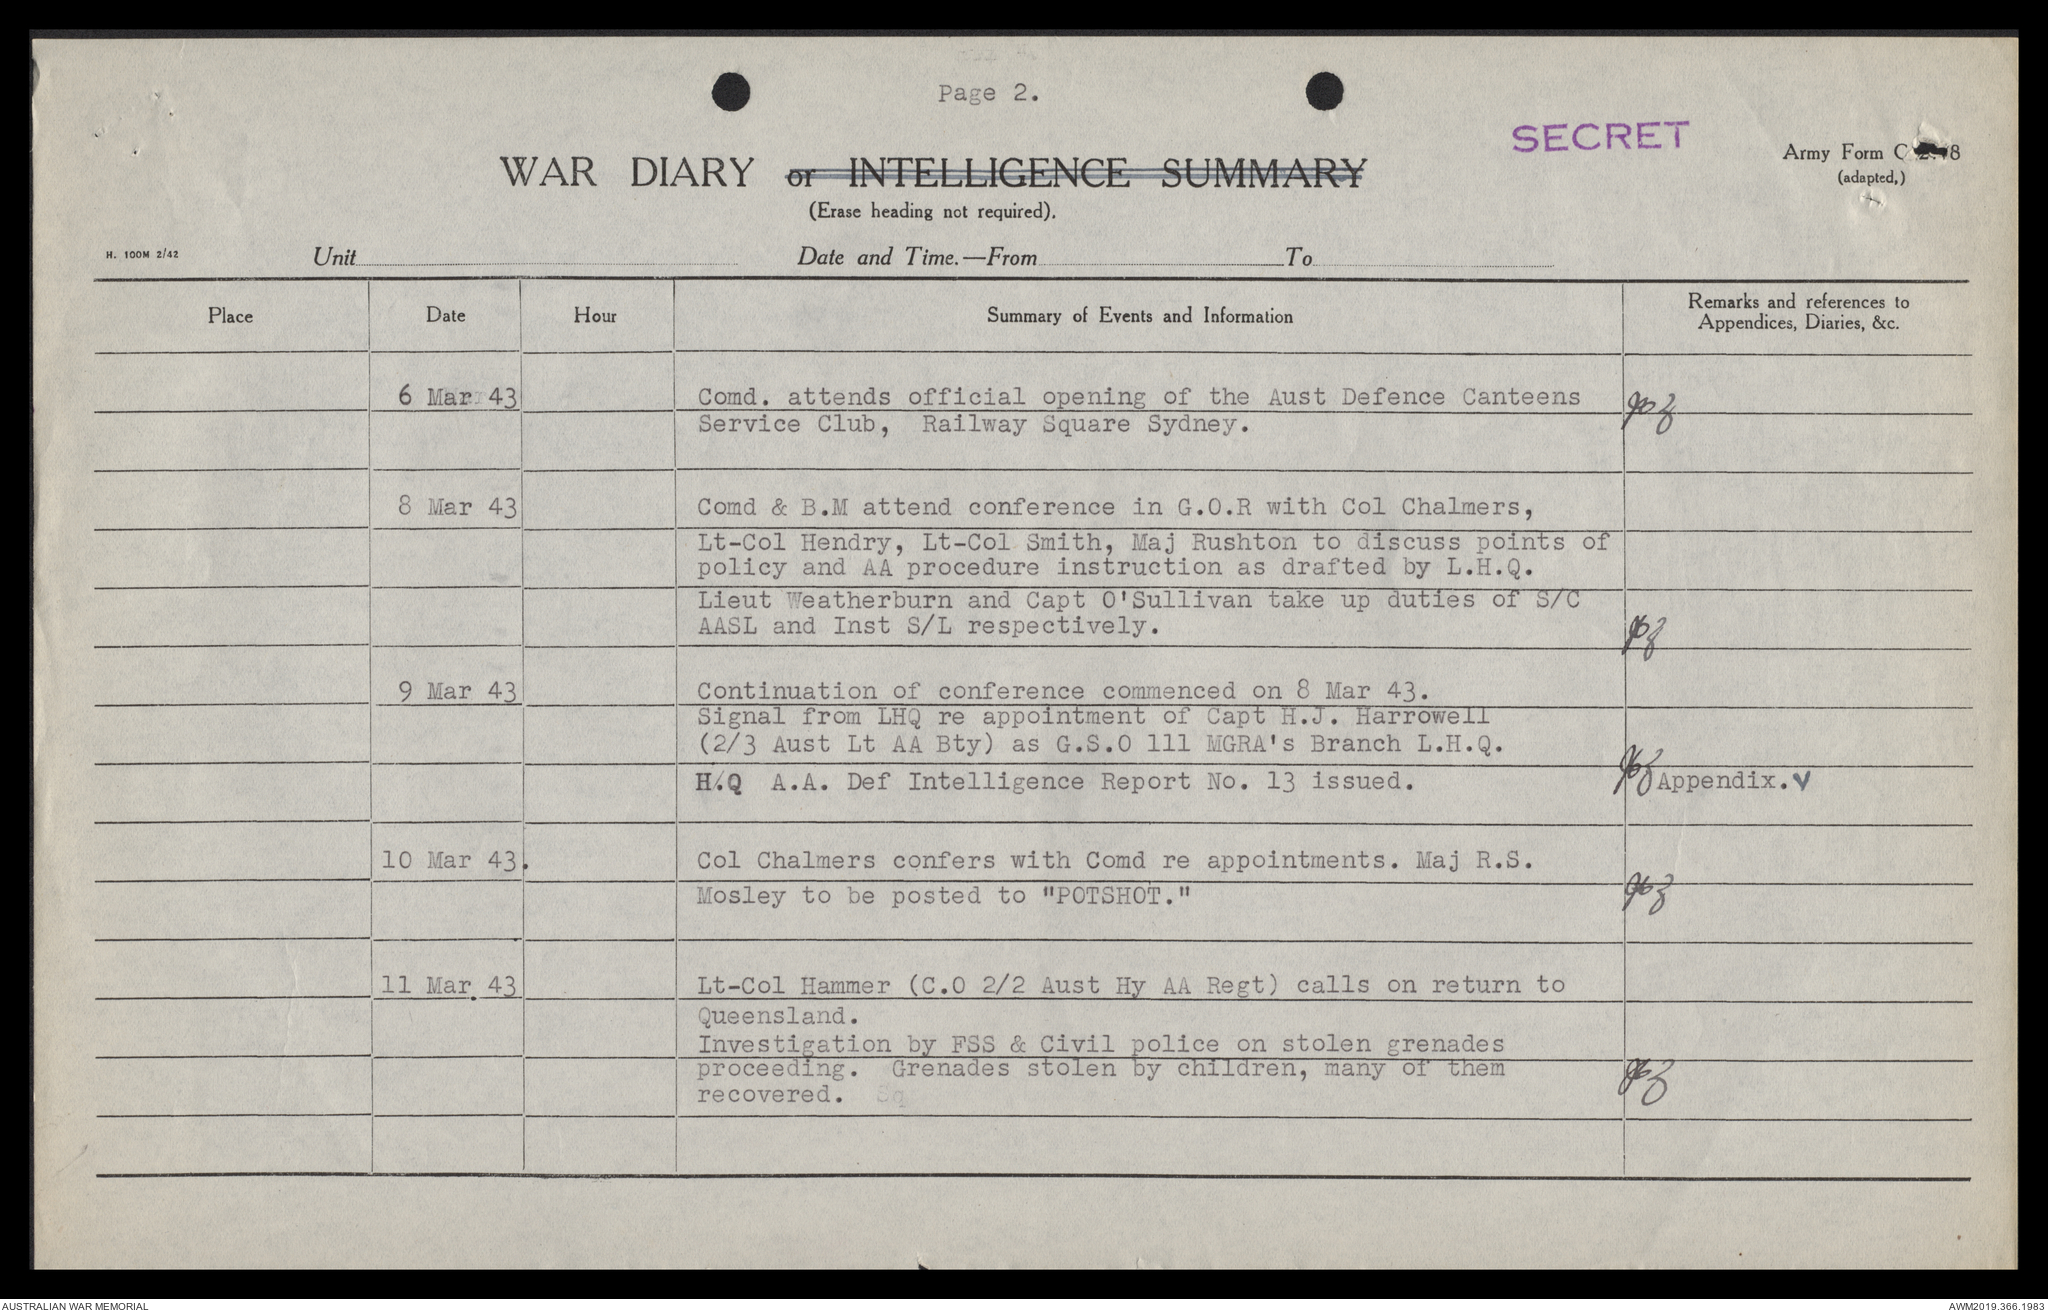 Page 2.
SECRET
WAR DIARY or INTELLIGENCE SUMMARY
(Erase heading not required).
Army Form C 8
(adapted,)
H. 100M 2/42
Unit Date and Time.—From To
Place Date Hour Summary of Events and Information Remarks and references to
Appendices, Diaries, &c.
6 Mar 43 Comd. attends official opening of the Aust Defence Canteens
Service Club, Railway Square Sydney.
8 Mar 43 Comd & B.M attend conference in G.O.R with Col Chalmers,
Lt-Col Hendry, Lt-Col Smith, Maj Rushton to discuss points of
policy and AA procedure instruction as drafted by L.H.Q.
Lieut Weatherburn and Capt O'Sullivan take up duties of S/C
AASL and Inst S/L respectively.
9 Mar 43 Continuation of conference commenced on 8 Mar 43.
Signal from LHQ re appointment of Capt H.J. Harrowell
(2/3 Aust Lt AA Bty) as G.S.O 111 MGRA's Branch L.H.Q.
H.Q A.A. Def Intelligence Report No. 13 issued. Appendix. V
10 Mar 43. Col Chalmers confers with Comd re appointments. Maj R.S.
Mosley to be posted to "POTSHOT."
11 Mar. 43 Lt-Col Hammer (C.O 2/2 Aust Hy AA Regt) calls on return to
Queensland.
Investigation by FSS & Civil police on stolen grenades
proceeding. Grenades stolen by children, many of them
recovered. Sq
AUSTRALIAN WAR MEMORIAL
AWM2019.366.1983